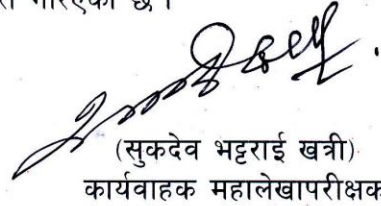 गरिएको छ।
(सुकदेव भट्टराई खत्री)
कार्यवाहक महालेखापरीक्षक